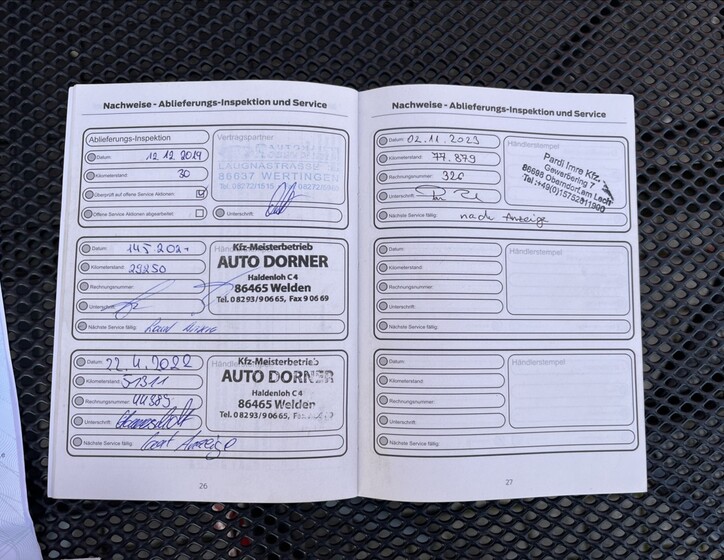 Nachweise - Ablieferungs-Inspektion und Service
Ablieferungs-Inspektion
Datum: 12.12.2019
Kilometerstand: 30
Überprüft auf offene Service Aktionen:
Offene Service Aktionen abgearbeitet:
Vertragspartner
LAUGNASTRASSE
86637 WERTINGEN
Unterschrift:
Datum: 14.5.2021
Kilometerstand: 29250
Rechnungsnummer:
Unterschrift:
Nächste Service fällig:
Kfz-Meisterbetrieb
AUTO DORNER
Haldenloh C 4
86465 Welden
Tel. 0 82 93 / 9 06 65, Fax 9 06 69
Datum: 22.4.2022
Kilometerstand: 51311
Rechnungsnummer: 44385
Unterschrift:
Nächste Service fällig: laut Anzeige
Kfz-Meisterbetrieb
AUTO DORNER
Haldenloh C 4
86465 Welden
Tel. 0 82 93 / 9 06 65, Fax
26
Nachweise - Ablieferungs-Inspektion und Service
Datum: 02.11.2023
Kilometerstand: 77.879
Rechnungsnummer: 326
Unterschrift:
Nächste Service fällig: nach Anzeige
Händlerstempel
Pardi Imre Kfz.
Gewerbering 7
86698 Oberndorf am Lech
Tel.:+49(0)15752811900
Datum:
Kilometerstand:
Rechnungsnummer:
Unterschrift:
Nächste Service fällig:
Händlerstempel
Datum:
Kilometerstand:
Rechnungsnummer:
Unterschrift:
Nächste Service fällig:
Händlerstempel
27